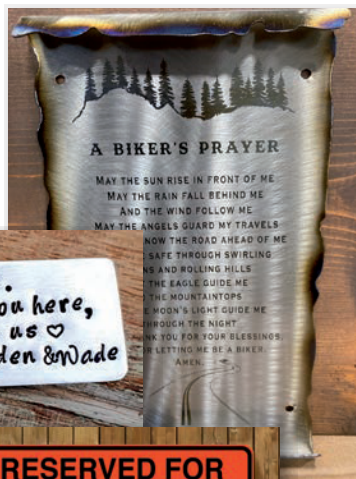 A BIKER'S PRAYER
MAY THE SUN RISE IN FRONT OF ME
MAY THE RAIN FALL BEHIND ME
AND THE WIND FOLLOW ME
MAY THE ANGELS GUARD MY TRAVELS
NOW THE ROAD AHEAD OF ME
SAFE THROUGH SWIRLING
NS AND ROLLING HILLS
THE EAGLE GUIDE ME
THE MOUNTAINTOPS
MOON'S LIGHT GUIDE ME
THROUGH THE NIGHT
NK YOU FOR YOUR BLESSINGS
R LETTING ME BE A BIKER.
AMEN.
ou here,
us ♡
den & Wade
RESERVED FOR